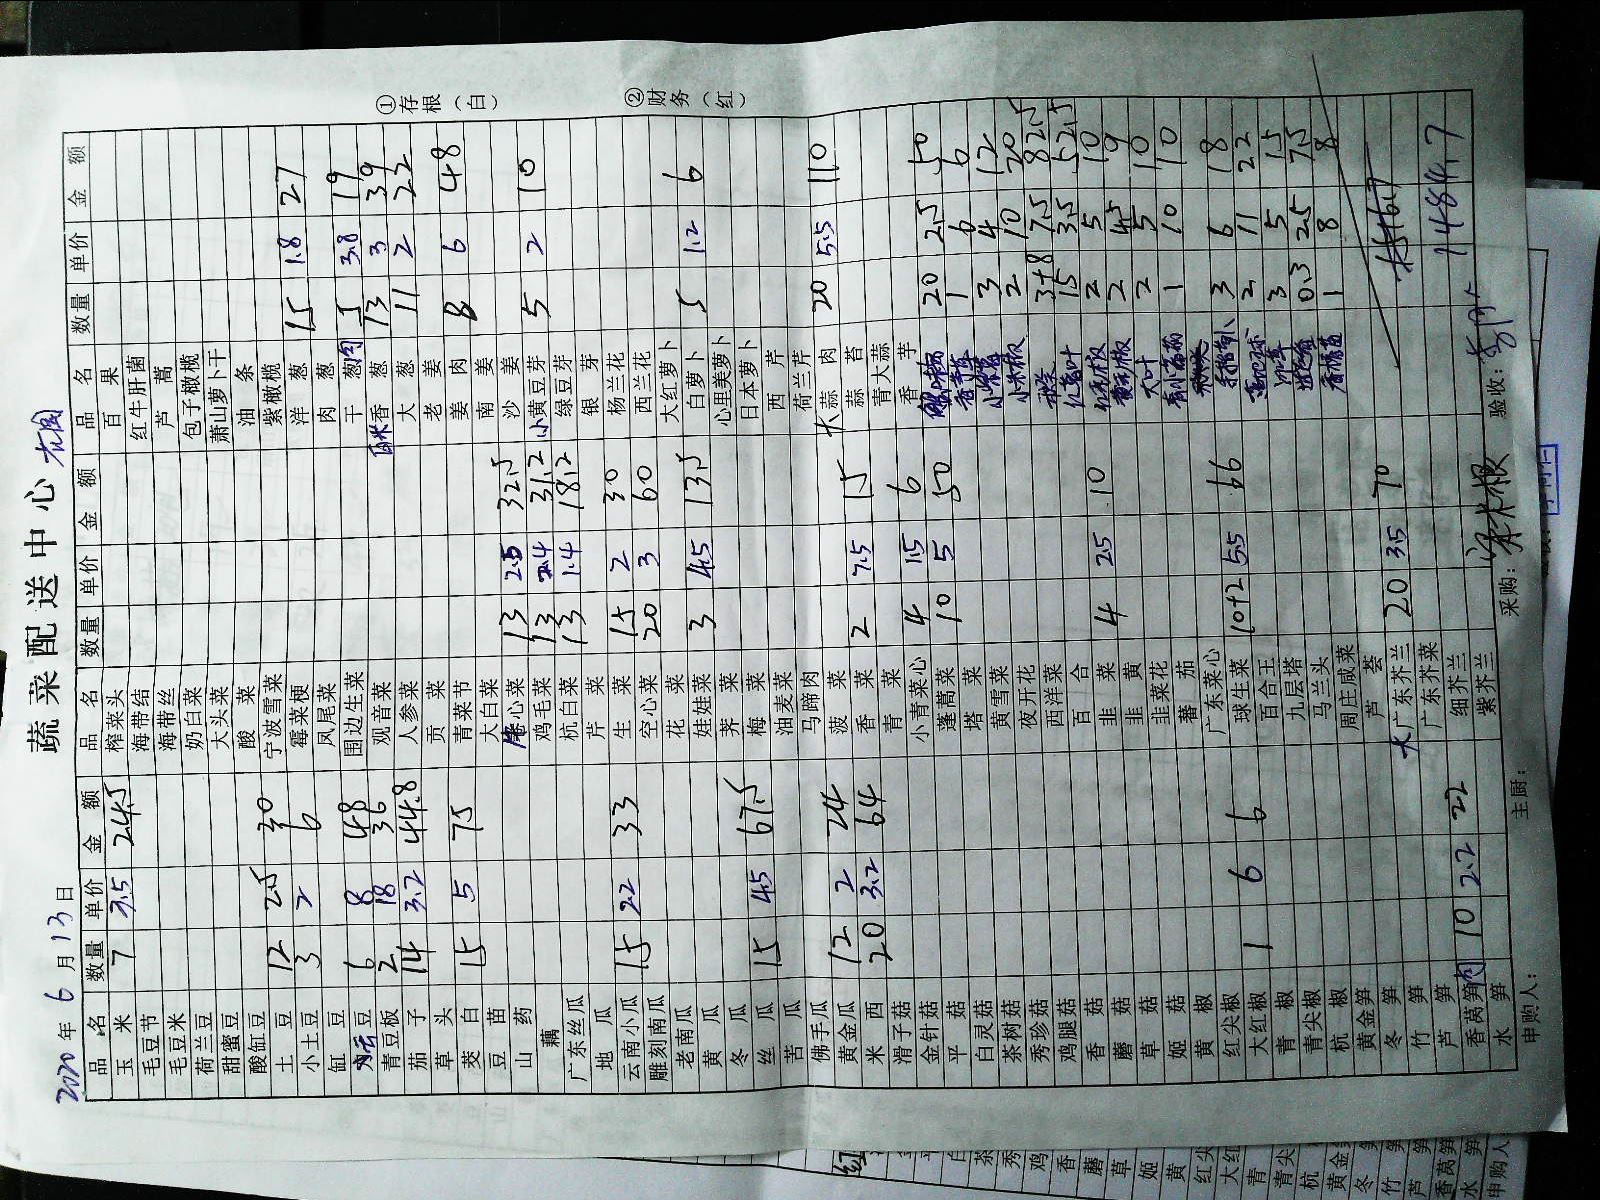 蔬菜配送中心
2020年6月13日
品名 数量 单价 金额 品名 数量 单价 金额 品名 数量 单价 金额
玉米 7 3.5 24.5 榨菜头 百果
毛豆节 海带结 红牛肝菌
毛豆米 海带丝 芦蒿
荷兰豆 奶白菜 包子橄榄
甜蜜豆 大头菜 萧山萝卜干
酸缸豆 酸菜 油条
土豆 12 2.5 30 宁波雪菜 紫橄榄
小土豆 3 2 6 霉菜梗 洋葱 15 1.8 27
缸豆 凤尾菜 肉葱
云豆 6 8 48 围边生菜 干葱肉 5 3.8 19
青豆板 2 18 36 观音菜 香葱 13 3 39
茄子 14 3.2 44.8 人参菜 大葱 11 2 22
草头 贡菜 老姜
茭白 15 5 75 青菜节 姜肉 8 6 48
豆苗 大白菜 南姜
山药 卷心菜 13 2.5 32.5 沙姜
藕 鸡毛菜 13 2.4 31.2 小黄豆芽 5 2 10
广东丝瓜 杭白菜 13 1.4 18.2 绿豆芽
地瓜 芹菜 银芽
云南小瓜 15 2.2 33 生菜 15 2 30 杨兰花
雕刻南瓜 空心菜 20 3 60 西兰花
老南瓜 花菜 大红萝卜
黄瓜 娃娃菜 3 4.5 13.5 白萝卜 5 1.2 6
冬瓜 荠菜 心里美萝卜
丝瓜 15 4.5 67.5 梅菜 日本萝卜
苦瓜 油麦菜 西芹
佛手瓜 马蹄肉 荷兰芹
黄金瓜 12 2 24 菠菜 大蒜肉 20 5.5 110
米西 20 3.2 64 香菜 2 7.5 15 蒜苔
滑子菇 青菜 青大蒜
金针菇 小青菜心 4 1.5 6 香芋
平菇 蓬蒿菜 10 5 50 20 2.5 50
白灵菇 塔菜 1 6 6
茶树菇 黄雪菜 3 4 12
秀珍菇 夜开花 小米椒 2 10 20
鸡腿菇 西洋菜 3+8 7.5 82.5
香菇 百合 15 3.5 52.5
蘑菇 韭菜 4 2.5 10 2 5 10
草菇 韭黄 2 4.5 9
姬菇 韭菜花 大叶 2 5 10
黄椒 蕃茄 1 10 10
红尖椒 广东菜心
大红椒 1 6 6 球生菜 10+2 5.5 66 3 6 18
青椒 百合王 2 11 22
青尖椒 九层塔 3 5 15
杭椒 马兰头 0.3 25 7.5
黄金笋 周庄咸菜 1 8 8
冬笋 芦荟
竹笋 大广东芥兰 20 3.5 70
芦笋 广东芥菜
香莴笋肉 10 2.2 22 细芥兰 1484.7
水笋 紫芥兰
申购人： 主厨： 采购： 验收：
①存根（白）
②财务（红）